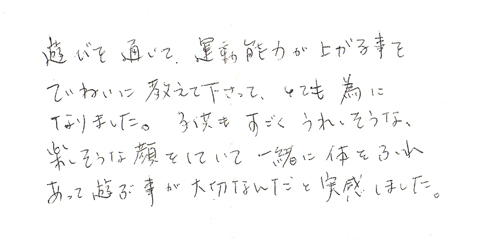 遊びを通いて、運動能力が上がる事を
ていねいに教えて下さって、とても為に
なりました。子供もすごくうれしそうな、
楽しそうな顔をしていて一緒に体をふれ
あって遊ぶ事が大切なんだと実感しました。